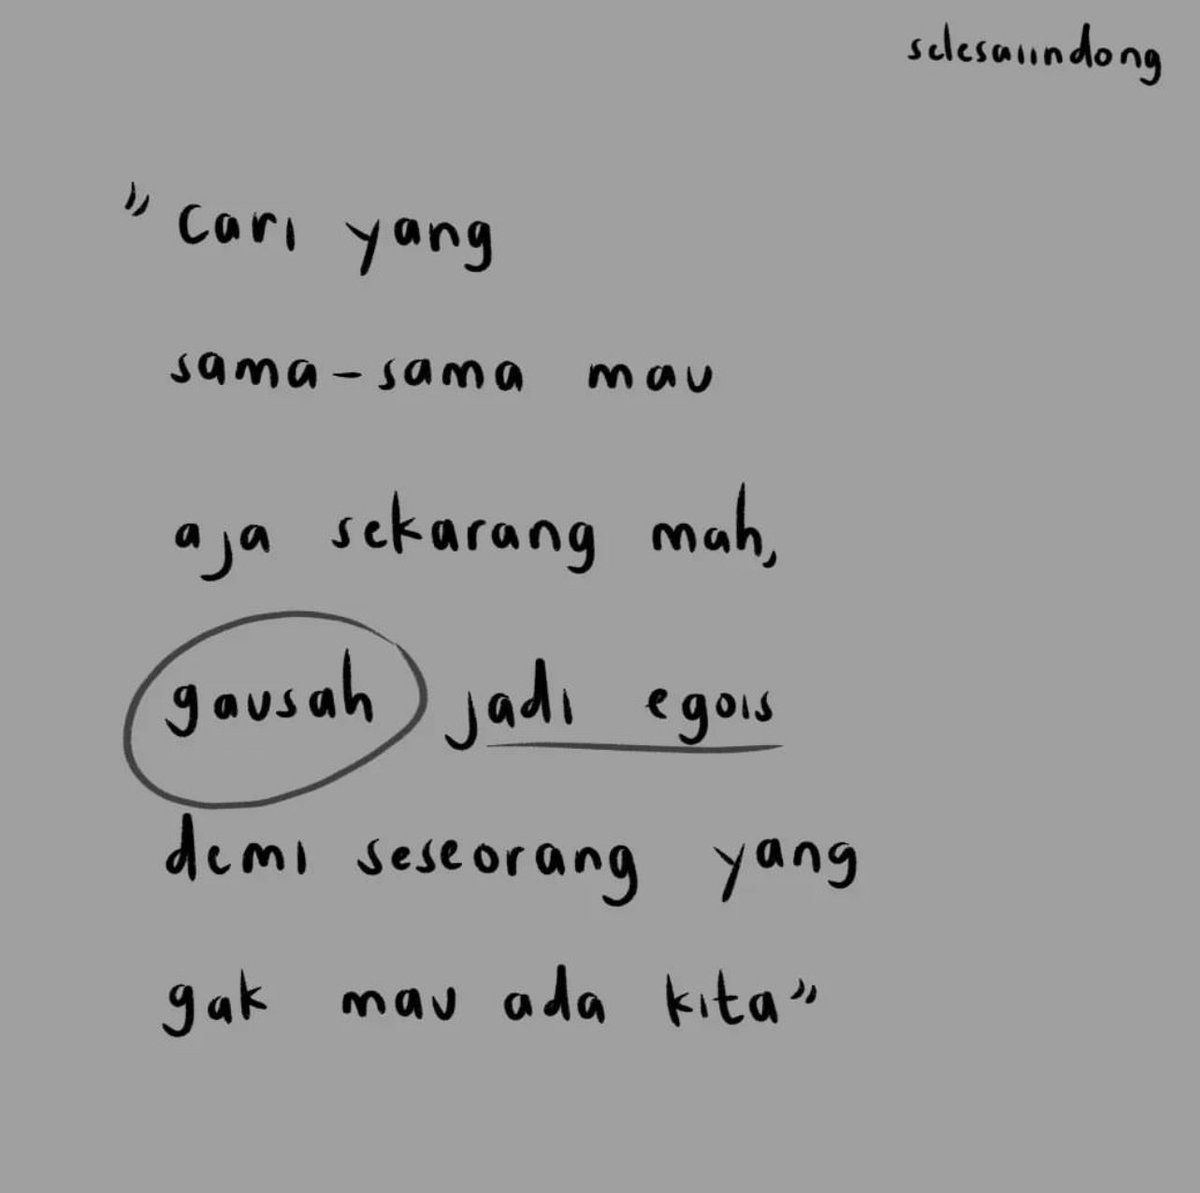 selesaiindong
"cari yang
sama-sama mau
aja sekarang mah,
gausah jadi egois
demi seseorang yang
gak mau ada kita"